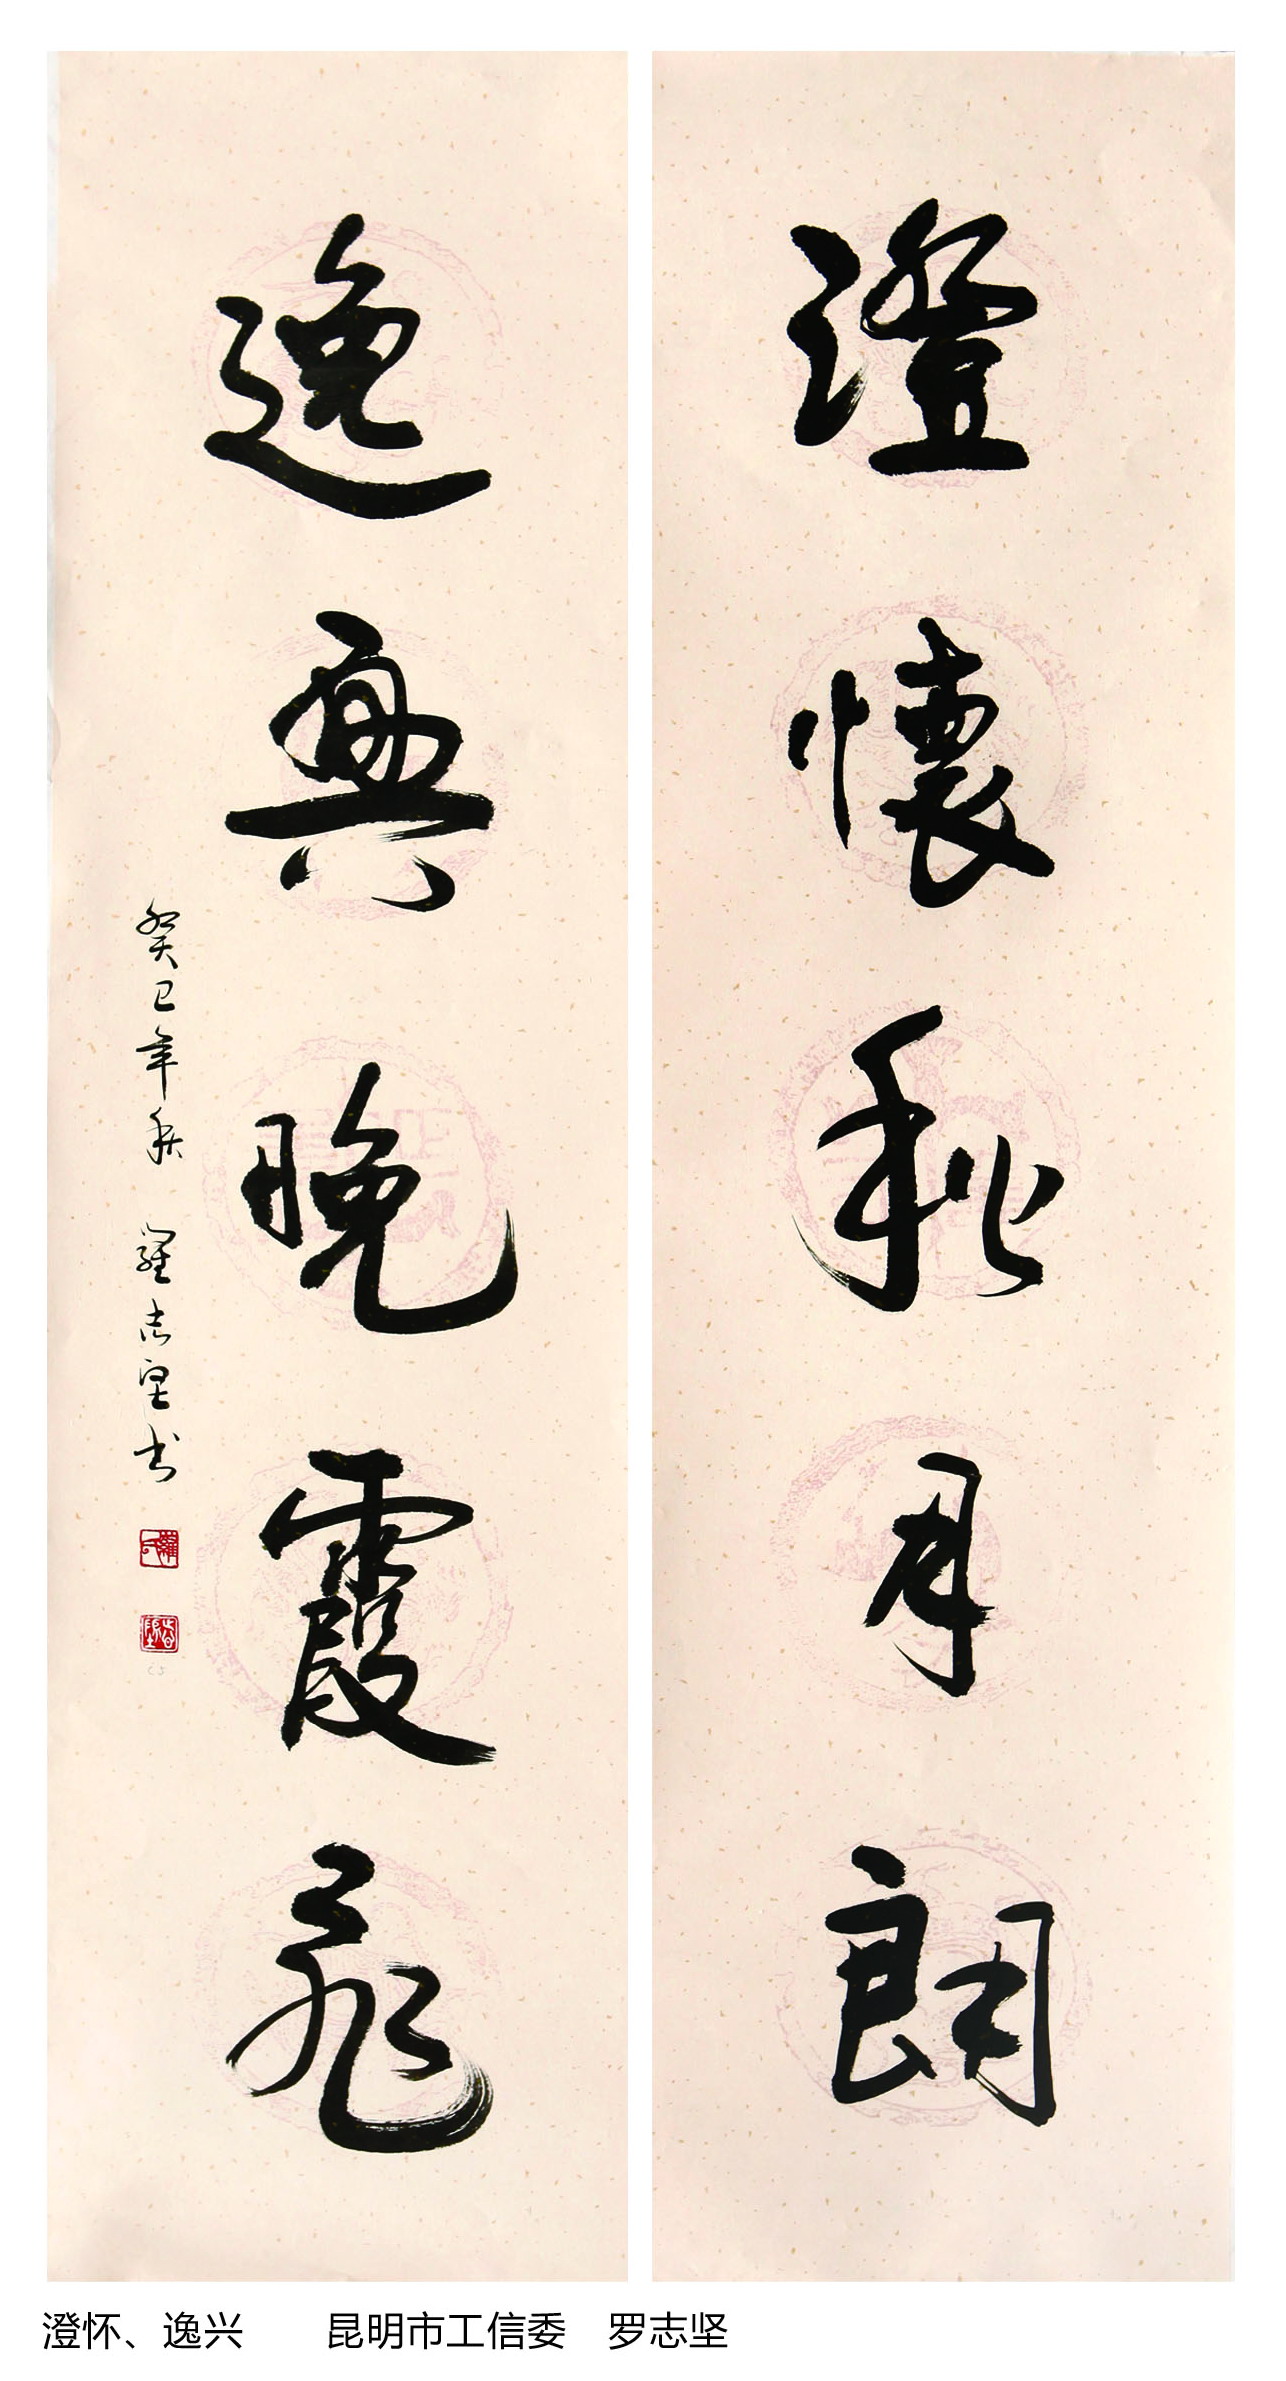 澄懷秋月朗
逸興晚霞飛
癸巳年秋 羅志堅书
羅氏
志堅
澄怀、逸兴 昆明市工信委 罗志坚